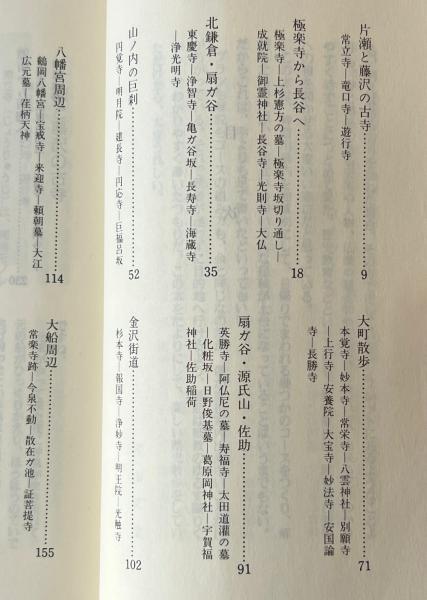 片瀬と藤沢の古寺……9
常立寺―竜口寺―遊行寺
極楽寺から長谷へ……18
極楽寺―上杉憲方の墓―極楽寺坂切り通し―
成就院―御霊神社―長谷寺―光則寺―大仏
北鎌倉・扇ガ谷……35
東慶寺―浄智寺―亀ガ谷坂―長寿寺―海蔵寺
―浄光明寺
山ノ内の巨刹……52
円覚寺―明月院―建長寺―円応寺―巨福呂坂
八幡宮周辺……114
鶴岡八幡宮―宝戒寺―来迎寺―頼朝墓―大江
広元墓―荏柄天神
大町散歩……71
本覚寺―妙本寺―常栄寺―八雲神社―別願寺
―上行寺―安養院―大宝寺―妙法寺―安国論
寺―長勝寺
扇ガ谷・源氏山・佐助……91
英勝寺―阿仏尼の墓―寿福寺―太田道灌の墓
―化粧坂―日野俊基墓―葛原岡神社―宇賀福
神社―佐助稲荷
金沢街道……102
杉本寺―報国寺―浄妙寺―明王院―光触寺
大船周辺……155
常楽寺跡―今泉不動―散在ガ池―証菩提寺